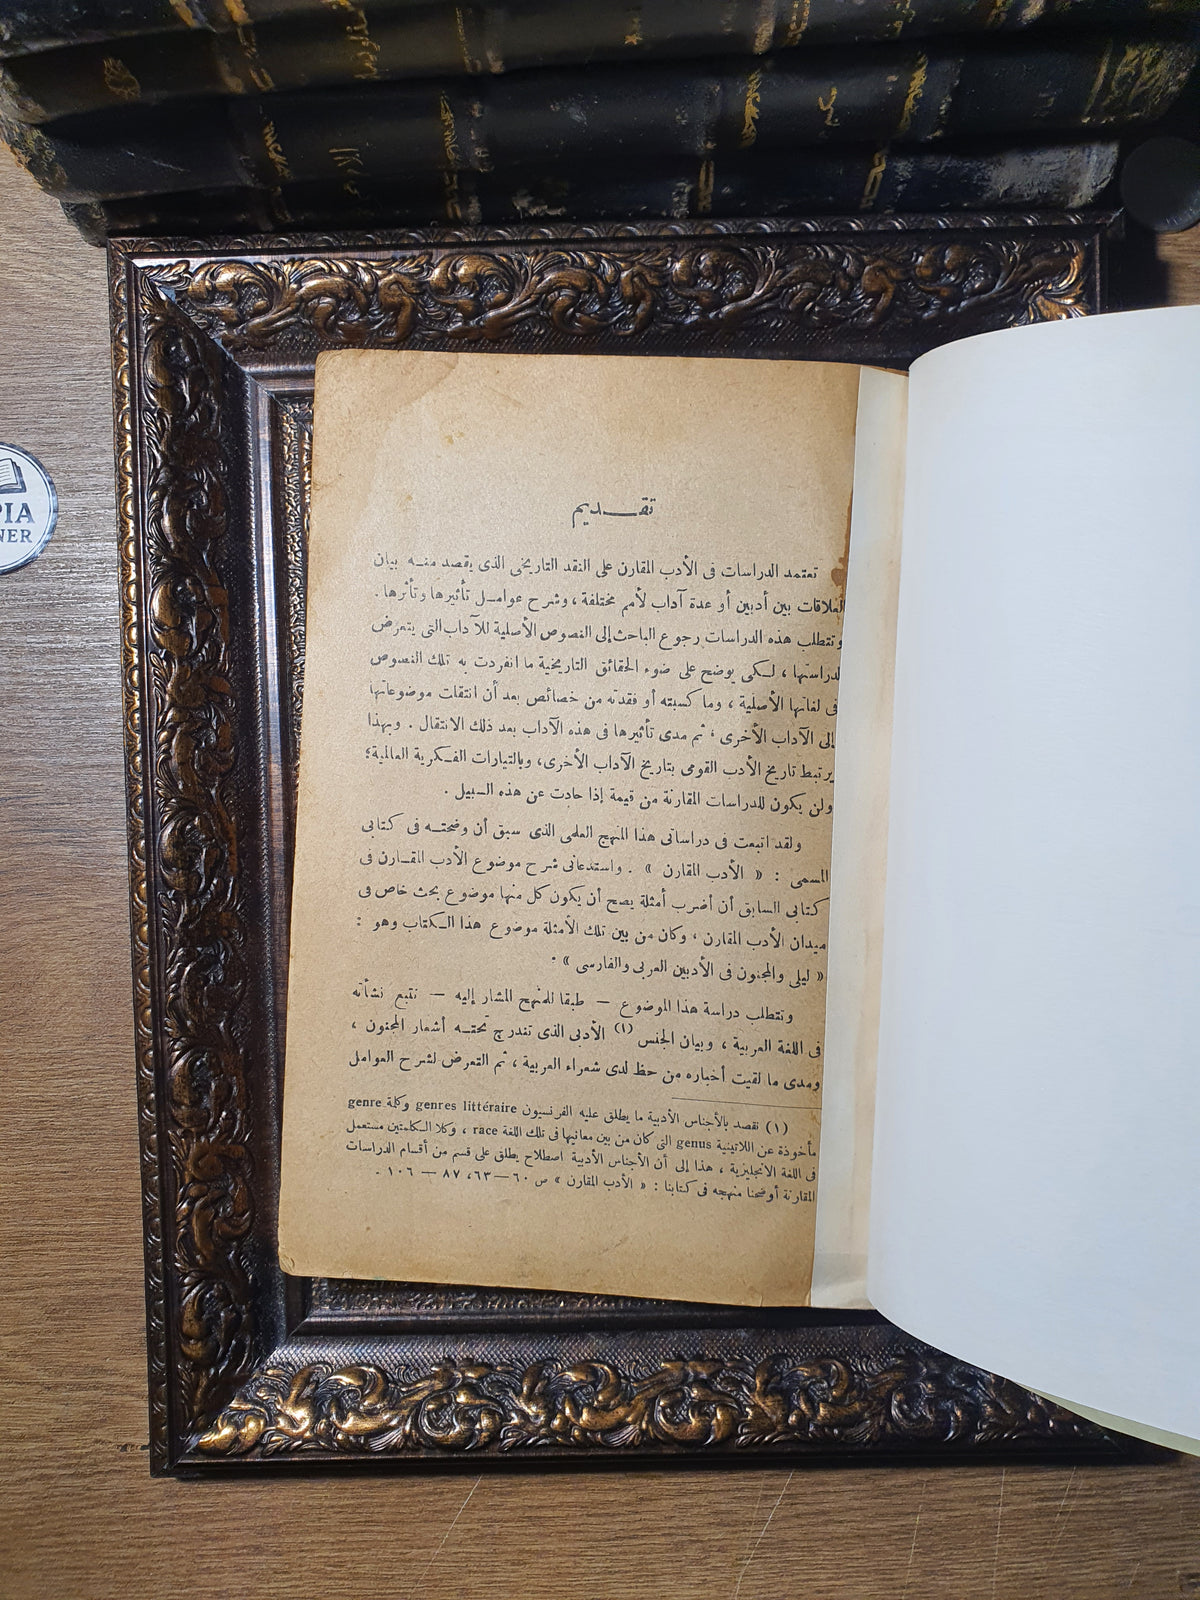 تقـــديم
تعتمد الدراسات فى الأدب المقارن على النقد التاريخى الذى يقصد منـه بيان
العلاقات بين أدبين أو عدة آداب لأمم مختلفة ، وشرح عوامـل تأثيرها وتأثرها .
وتتطلب هذه الدراسات رجوع الباحث إلى النصوص الأصلية للآداب التى يتعرض
لدراستها ، لـكى يوضح على ضوء الحقائق التاريخية ما انفردت به تلك النصوص
فى لغاتها الأصلية ، وما كسبته أو فقدته من خصائص بعد أن انتقلت موضوعاتها
إلى الآداب الأخرى ؛ ثم مدى تأثيرها فى هذه الآداب بعد ذلك الانتقال . وبهذا
يرتبط تاريخ الأدب القومى بتاريخ الآداب الأخرى، وبالتيارات الفـكرية العالمية؛
ولن يكون للدراسات المقارنة من قيمة إذا حادت عن هذه السبيل .
ولقد اتبعت فى دراساتى هذا المنهج العلمى الذى سبق أن وضحتـه فى كتابى
المسمى : « الأدب المقارن » . واستدعانى شرح موضوع الأدب المقـارن فى
كتابى السابق أن أضرب أمثلة يصح أن يكون كل منها موضوع بحث خاص فى
ميدان الأدب المقارن ، وكان من بين تلك الأمثلة موضوع هذا الـكتاب وهو :
« ليلى والمجنون فى الأدبين العربى والفارسى » .
وتتطلب دراسة هذا الموضوع — طبقا للمنهج المشار إليه — تتبع نشأته
فى اللغة العربية ، وبيان الجنس (١) الأدبى الذى تندرج تحتـه أشعار المجنون ،
ومدى ما لقيت أخباره من حظ لدى شعراء العربية ، ثم التعرض لشرح العوامل
(١) نقصد بالأجناس الأدبية ما يطلق عليه الفرنسيون genres littéraire وكلمة genre
مأخوذة عن اللاتينية genus التى كان من بين معانيها فى تلك اللغة race ، وكلا الـكلمتين مستعمل
فى اللغة الانجليزية ، هذا إلى أن الأجناس الأدبية اصطلاح يطلق على قسم من أقسام الدراسات
المقارنة أوضحنا منهجه فى كتابنا : « الأدب المقارن » ص ٦٠—٦٣، ٨٧ — ١٠٦ .
PIA
NER